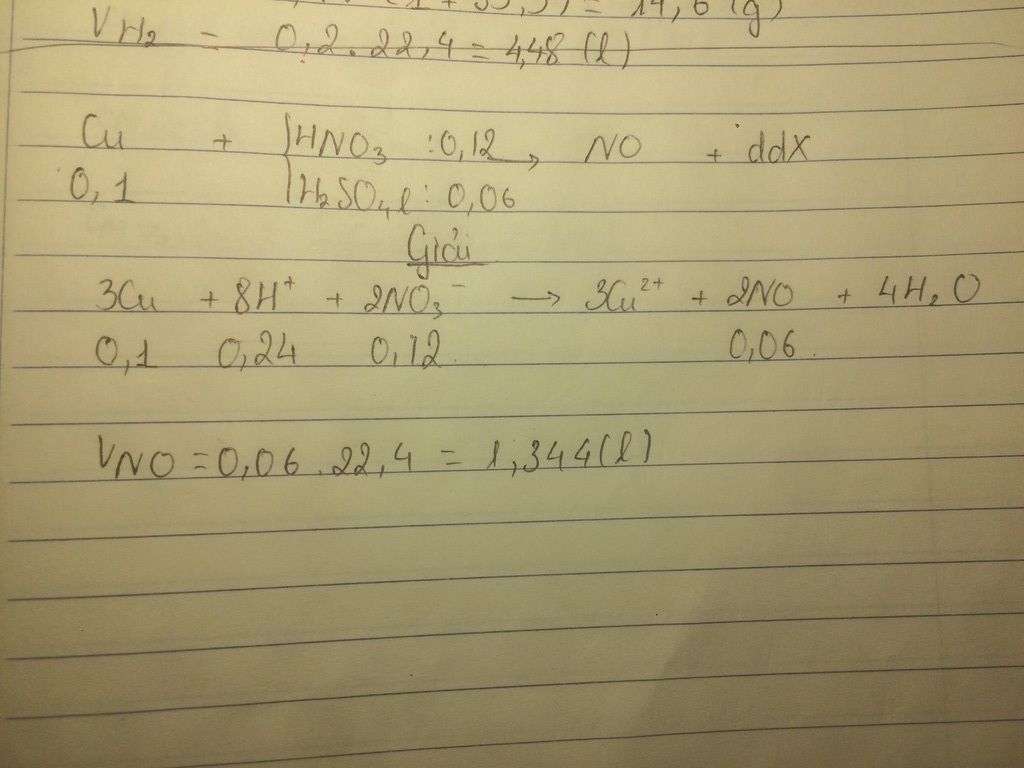 (1 + 35,5) = 14,6 (g)
VH₂ = 0,2 . 22,4 = 4,48 (l)
Cu + HNO₃ : 0,12 → NO + ddX
0,1 H₂SO₄ l : 0,06
Giải
3Cu + 8H⁺ + 2NO₃⁻ → 3Cu²⁺ + 2NO + 4H₂O
0,1 0,24 0,12 0,06
VNO = 0,06 . 22,4 = 1,344 (l)